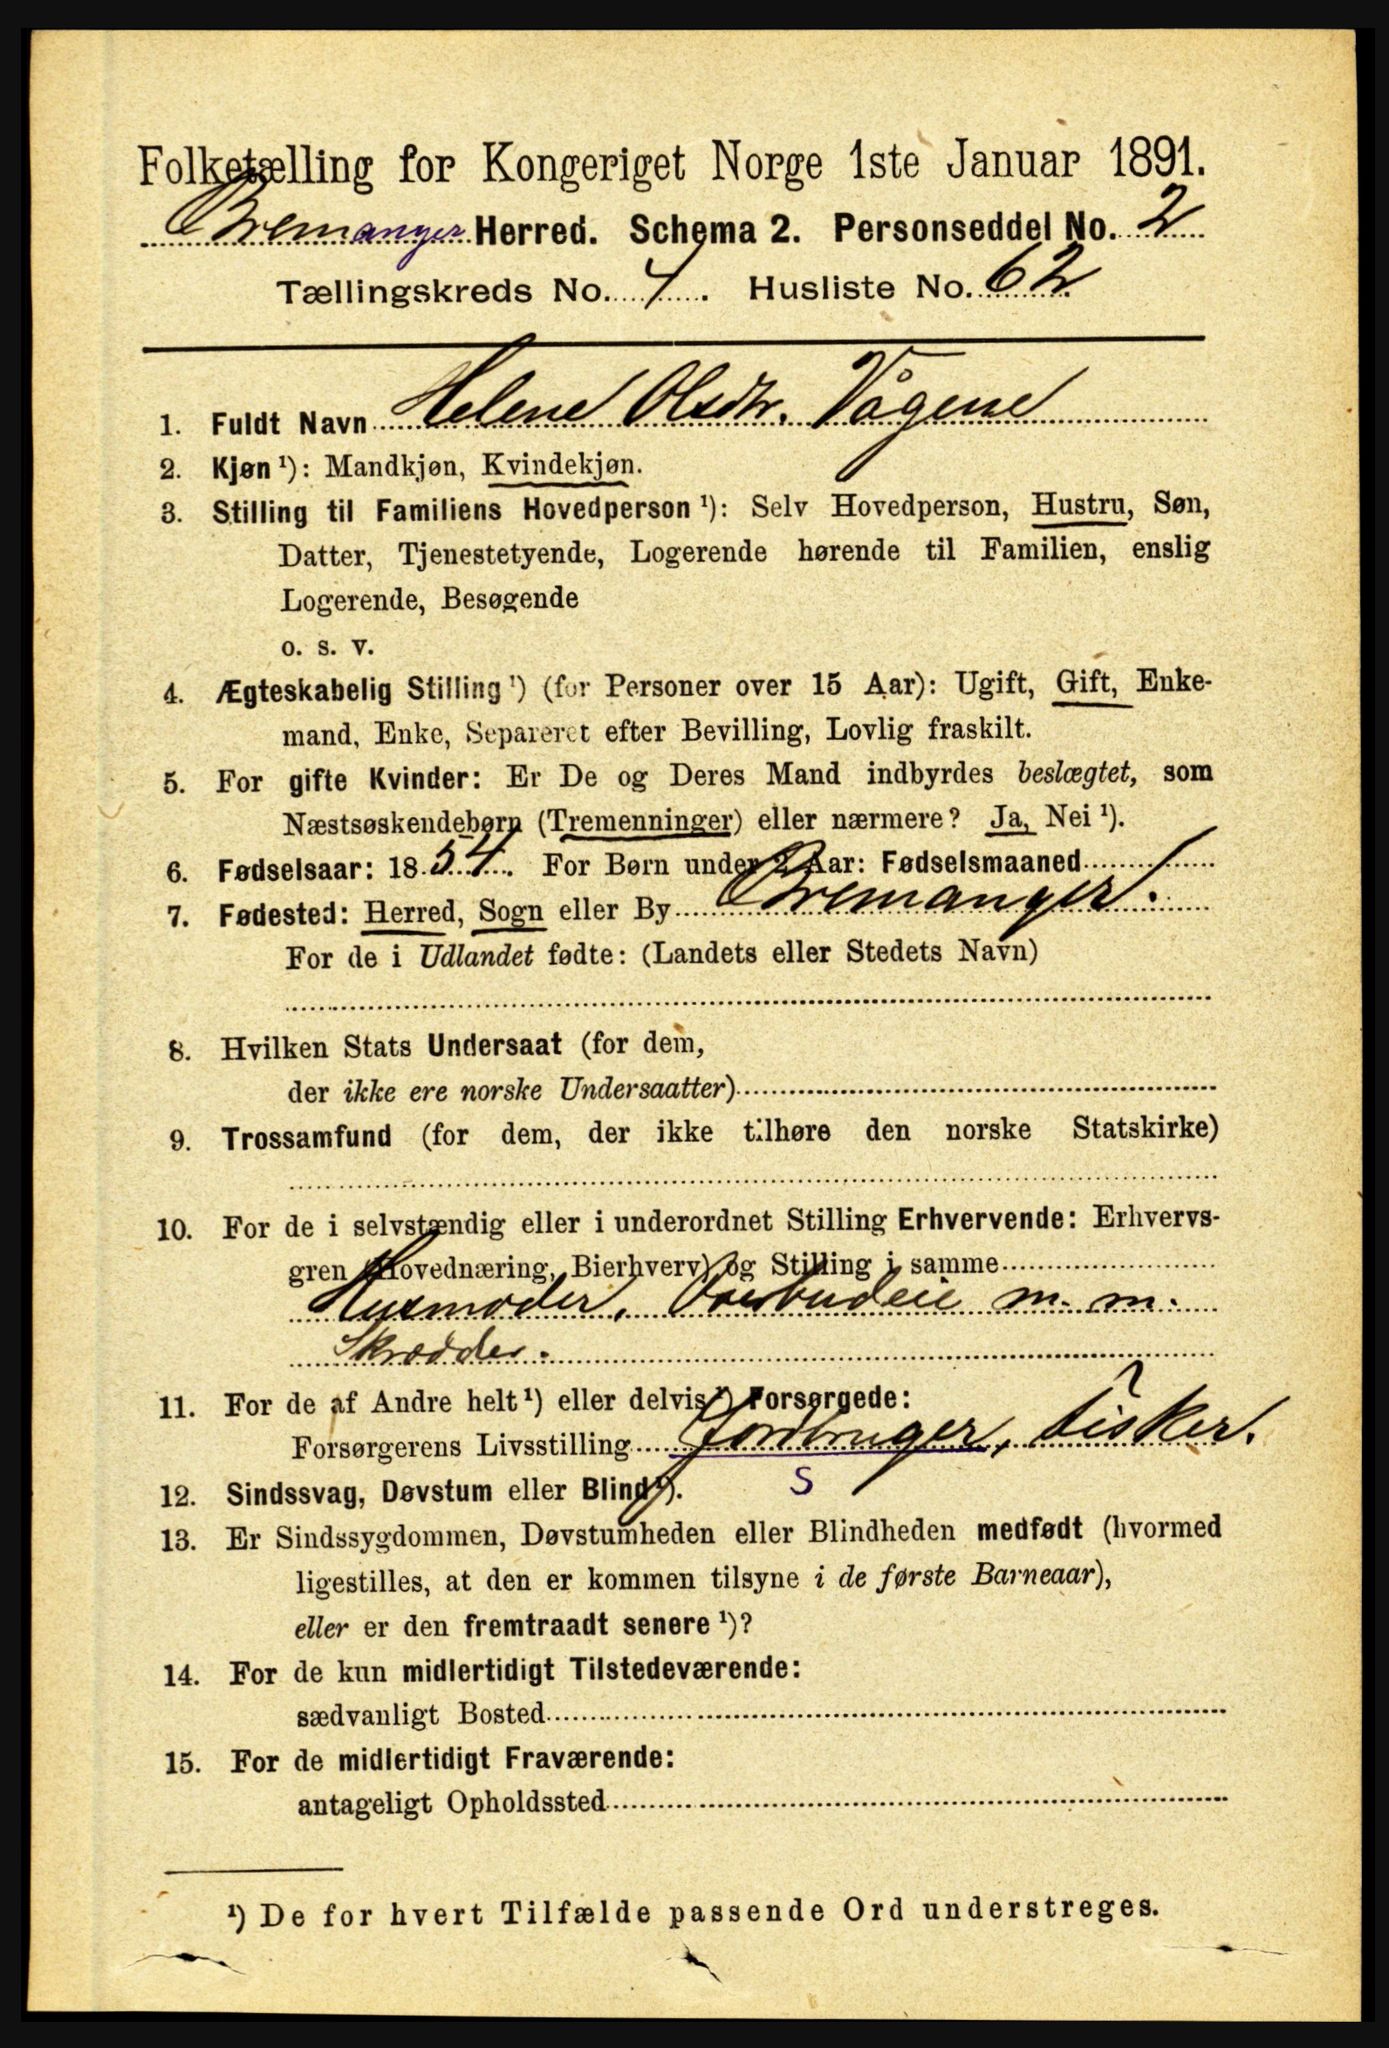 Folketælling for Kongeriget Norge 1ste Januar 1891.
Bremanger Herred. Schema 2. Personseddel No. 2
Tællingskreds No. 4. Husliste No. 62
1. Fuldt Navn Helene Olsdtr. Vågene
2. Kjøn ¹): Mandkjøn, Kvindekjøn.
3. Stilling til Familiens Hovedperson ¹): Selv Hovedperson, Hustru, Søn,
Datter, Tjenestetyende, Logerende hørende til Familien, enslig
Logerende, Besøgende
o. s. v.
4. Ægteskabelig Stilling ¹) (for Personer over 15 Aar): Ugift, Gift, Enke-
mand, Enke, Separeret efter Bevilling, Lovlig fraskilt.
5. For gifte Kvinder: Er De og Deres Mand indbyrdes beslægtet, som
Næstsøskendebørn (Tremenninger) eller nærmere? Ja, Nei ¹).
6. Fødselsaar: 1854. For Børn under 2 Aar: Fødselsmaaned
7. Fødested: Herred, Sogn eller By Bremanger.
For de i Udlandet fødte: (Landets eller Stedets Navn)
8. Hvilken Stats Undersaat (for dem,
der ikke ere norske Undersaatter)
9. Trossamfund (for dem, der ikke tilhøre den norske Statskirke)
10. For de i selvstændig eller i underordnet Stilling Erhvervende: Erhvervs-
gren (Hovednæring, Bierhverv) og Stilling i samme
Husmoder, m. m.
Skrædder.
11. For de af Andre helt ¹) eller delvis ¹) Forsørgede:
Forsørgerens Livsstilling Jordbruger, fisker.
S
12. Sindssvag, Døvstum eller Blind ¹).
13. Er Sindssygdommen, Døvstumheden eller Blindheden medfødt (hvormed
ligestilles, at den er kommen tilsyne i de første Barneaar),
eller er den fremtraadt senere ¹)?
14. For de kun midlertidigt Tilstedeværende:
sædvanligt Bosted
15. For de midlertidigt Fraværende:
antageligt Opholdssted
¹) De for hvert Tilfælde passende Ord understreges.